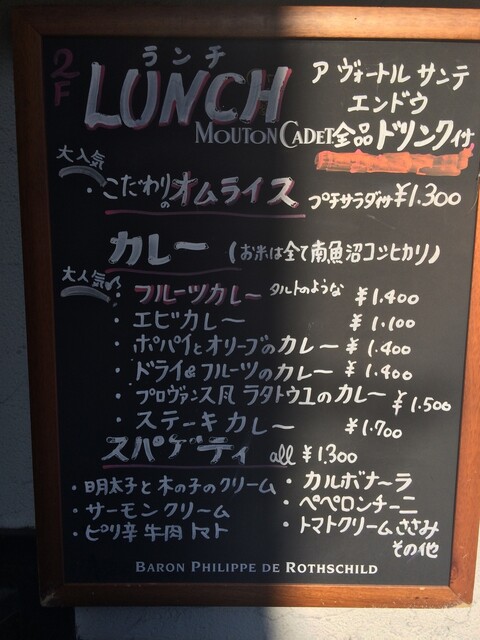 2F
ランチ
LUNCH
ア ヴォートル サンテ
エンドウ
MOUTON CADET
全品ドリンク付
大人気
・こだわりのオムライス プチサラダ付 ¥1.300
カレー (お米は全て南魚沼コシヒカリ)
大人気
・フルーツカレー タルトのような ¥1.400
・エビカレー ¥1.100
・ポパイとオリーブのカレー ¥1.400
・ドライ&フルーツのカレー ¥1.400
・プロヴァンス風 ラタトゥユのカレー ¥1.500
・ステーキカレー ¥1.700
スパゲティ all ¥1.300
・明太子と木の子のクリーム
・サーモンクリーム
・ピリ辛牛肉トマト
・カルボナーラ
・ペペロンチーニ
・トマトクリームささみ
その他
BARON PHILIPPE DE ROTHSCHILD